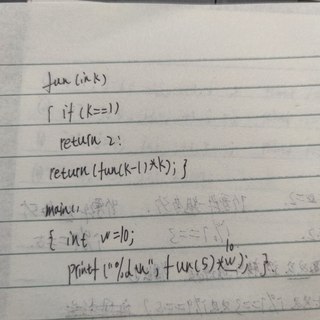 fun(ink)
{ if(k==1)
return 2:
return(fun(k-1)*k); }
main()
{ int w=10;
10
printf("%d\n", fun(5)*w); }